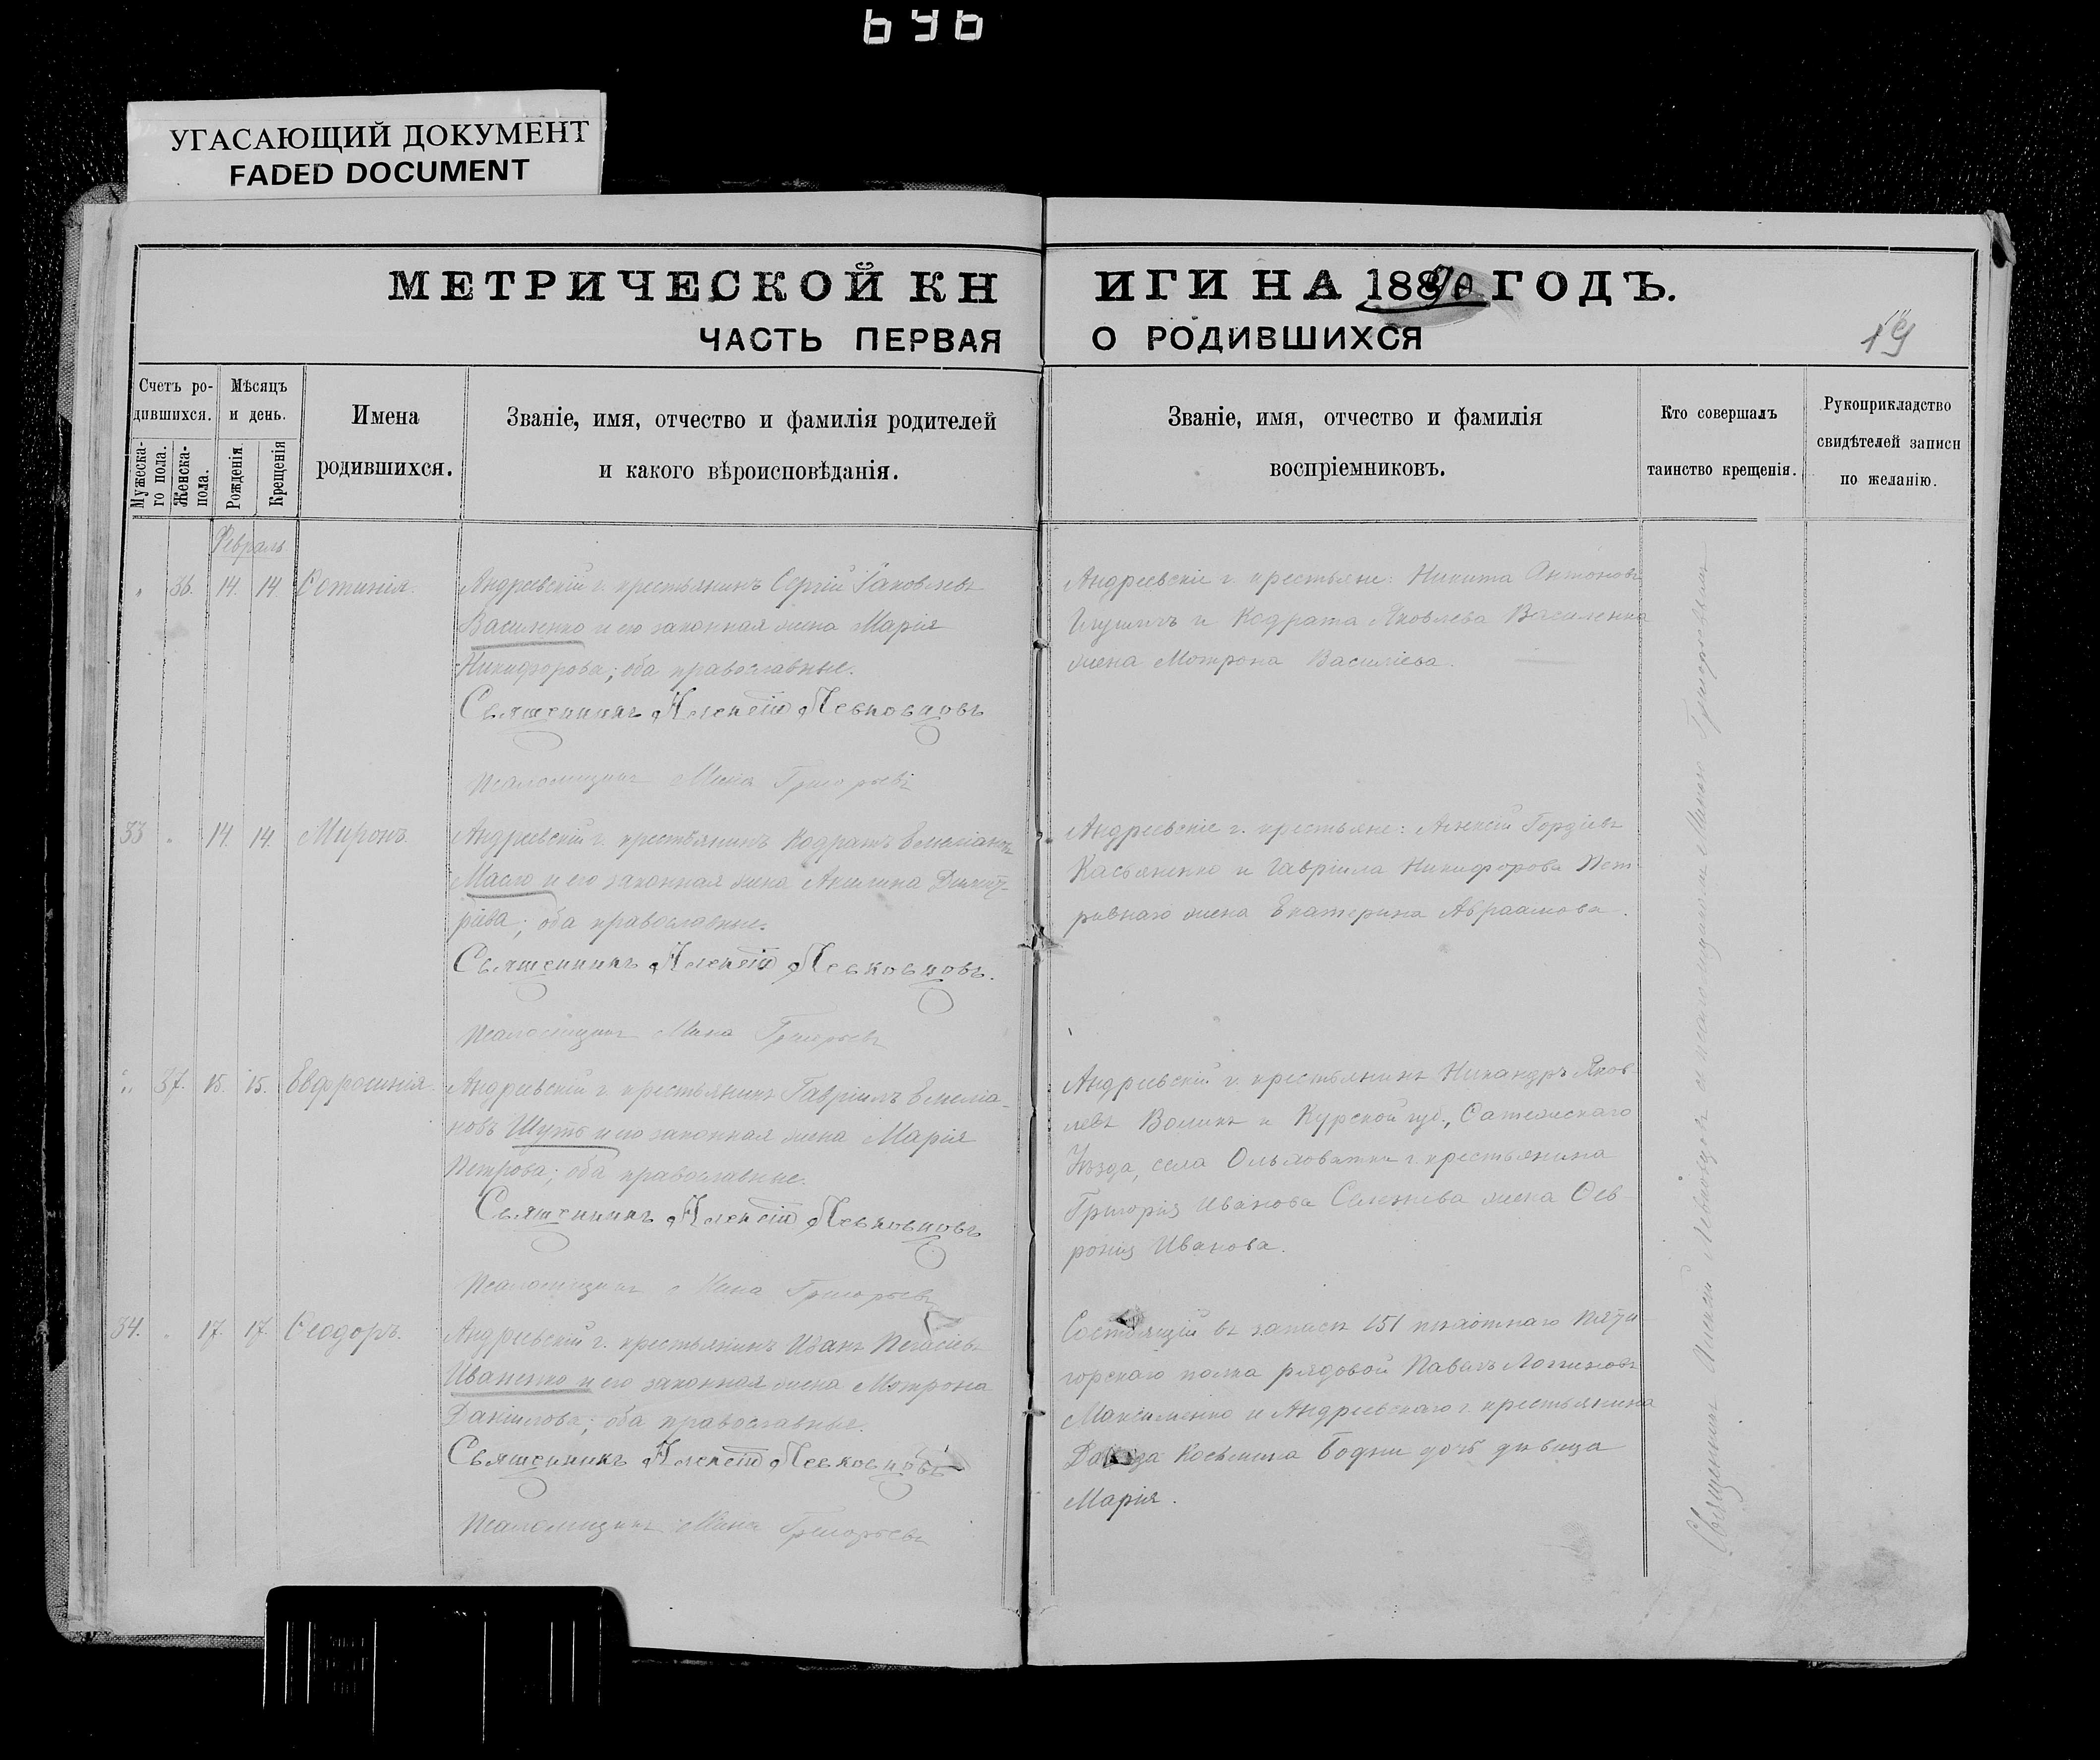 696
УГАСАЮЩИЙ ДОКУМЕНТ
FADED DOCUMENT
МЕТРИЧЕСКОЙ КНИГИ НА 1890 ГОДЪ.
ЧАСТЬ ПЕРВАЯ О РОДИВШИХСЯ
19
Счетъ ро-
дившихся.
Мужеска-
го пола.
Женска-
пола.
Мѣсяцъ
и день.
Рожденія
Крещенія
Имена
родившихся.
Званіе, имя, отчество и фамилія родителей
и какого вѣроисповѣданія.
Званіе, имя, отчество и фамилія
воспріемниковъ.
Кто совершалъ
таинство крещенія.
Рукоприкладство
свидѣтелей записи
по желанію.
Февраль
" 36. 14. 14. Фотинія.
Андреевскій г. крестьянинъ Сергій Іаковлевъ
Василенко и его законная жена Марія
Никифорова; оба православные.
Священникъ Алексій Левковцовъ
Псаломщикъ Мина Григорьевъ
Андреевскіе г. крестьяне: Никита Антоновъ
и Кодрата Яковлева Василенка
жена Мотрона Василіева.
33 " 14. 14. Миронъ.
Андреевскій г. крестьянинъ Кодратъ Емеліановъ
Масло и его законная жена Акилина Димит-
ріева; оба православные.
Священникъ Алексій Левковцовъ.
Псаломщикъ Мина Григорьевъ
Андреевскіе г. крестьяне: Алексій Гордіевъ
Касьяненко и Гавріила Никифорова Пет
ривнаго жена Екатерина Авраамова.
" 37. 15. 15. Евфросинія.
Андреевскій г. крестьянинъ Гавріилъ Емеліа-
новъ Шуть и его законная жена Марія
Петрова; оба православные.
Священникъ Алексій Левковцовъ
Псаломщикъ Мина Григорьевъ
Андреевскій г. крестьянинъ Никандръ Яков-
левъ Воликъ и Курской губ.,
Уѣзда, села Ольховатки г. крестьянина
Григорія Иванова жена Фев-
ронія Иванова.
34. " 17. 17. Ѳеодоръ.
Андреевскій г. крестьянинъ Иванъ
Иваненко и его законная жена Мотрона
Даніилова; оба православные.
Священникъ Алексій Левковцовъ
Псаломщикъ Мина Григорьевъ
Состоящій въ запасѣ 151 пѣхотнаго Пяти-
горскаго полка рядовой Павелъ Логиновъ
Максименко и Андреевскаго г. крестьянина
Давида Косьмина Бодни дочь дѣвица
Марія.
Священникъ Алексій Левковцовъ съ псаломщикомъ Миною Григорьевымъ